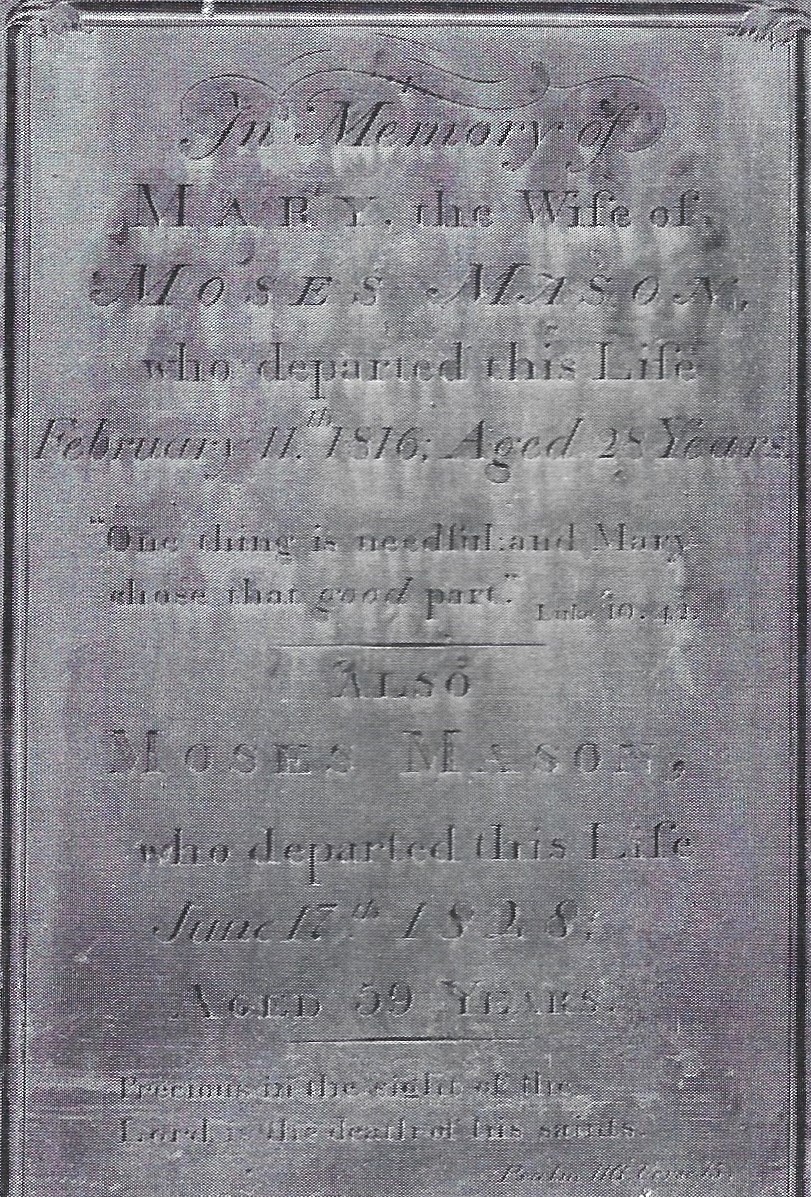 In Memory of
MARY, the Wife of
MOSES MASON,
who departed this Life
February 11.th 1816; Aged 28 Years.
"One thing is needful: and Mary
chose that good part."
Luke 10. 42.
ALSO
MOSES MASON,
who departed this Life
June 17th 1828;
AGED 59 YEARS.
Precious in the sight of the
Lord, is the death of his saints.
Psalm 116 verse 15.